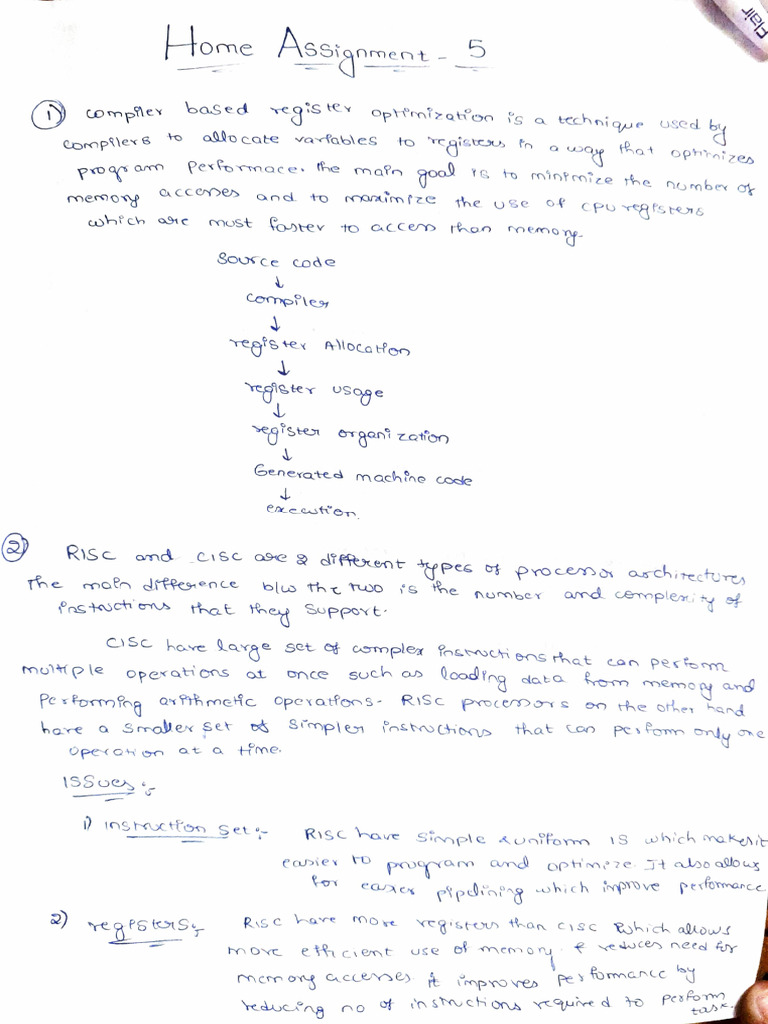 Flair
Home Assignment - 5
1) compiler based register optimization is a technique used by
compilers to allocate variables to registers in a way that optimizes
program performace. the main goal is to minimize the number of
memory accesses and to maximize the use of CPU registers
which are must faster to access than memory.
source code
↓
compiler
↓
register Allocation
↓
register usage
↓
register organization
↓
Generated machine code
↓
execution.
2) RISC and CISC are 2 different types of processor architectures
The main difference b/w the two is the number and complexity of
instructions that they support.
CISC have large set of complex instructions that can perform
multiple operations at once such as loading data from memory and
performing arithmetic operations. RISC processors on the other hand
have a smaller set of simpler instructions that can perform only one
operation at a time.
Issues :-
1) instruction set :- RISC have simple & uniform IS which makes it
easier to program and optimize. It also allows
for easier pipelining which improve performance
2) registers :- RISC have more registers than CISC which allows
more efficient use of memory & reduces need for
memory accesses. it improves performance by
reducing no of instructions required to perform
task.